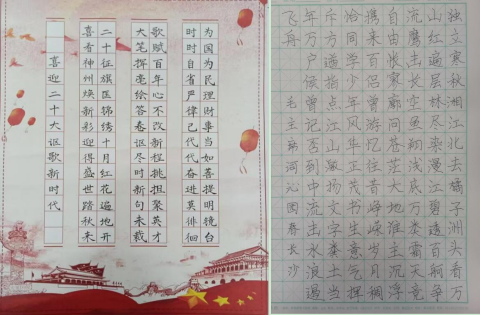 喜迎二十大讴歌新时代
喜看神州焕新彩迎得盛世踏秋来
二十征旗匡锦绣十月红花遍地开
大笔挥毫绘答卷讴尽时新句未裁
歌赋百年心不改新程挑担聚英才
时时自省严律己代代奋进英徘徊
为国为民理财事当如菩提明镜台
独立寒秋湘江北去橘子洲头看万
山红遍层林尽染漫江碧透百舸争
流鹰击长空鱼翔浅底万类霜天竞
自由怅寥廓问苍茫大地谁主沉浮
携来百侣曾游忆往昔峥嵘岁月稠
恰同学少年风华正茂书生意气挥
斥方遒指点江山激扬文字粪土当
年万户侯曾记否到中流击水浪遏
飞舟 毛主席词沁园春长沙